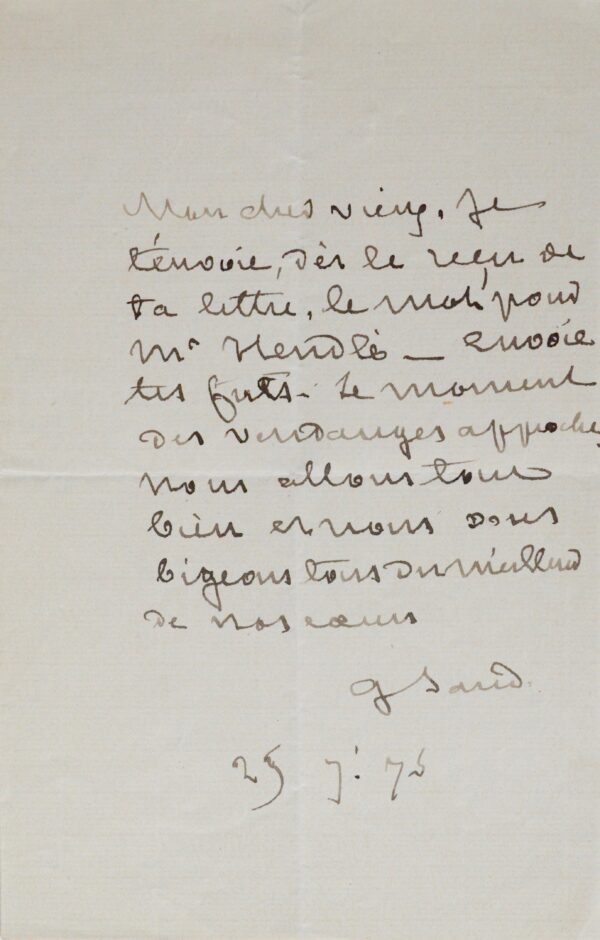 Mon cher vieux, je
t'envoie, dès le reçu de
ta lettre, le mot pour
Mr Hendlé _ Envoie
tes futs - le moment
des vendanges approche,
nous allons tous
bien et nous vous
bigeons tous du meilleur
de nos cœurs
G Sand
25 7. 75